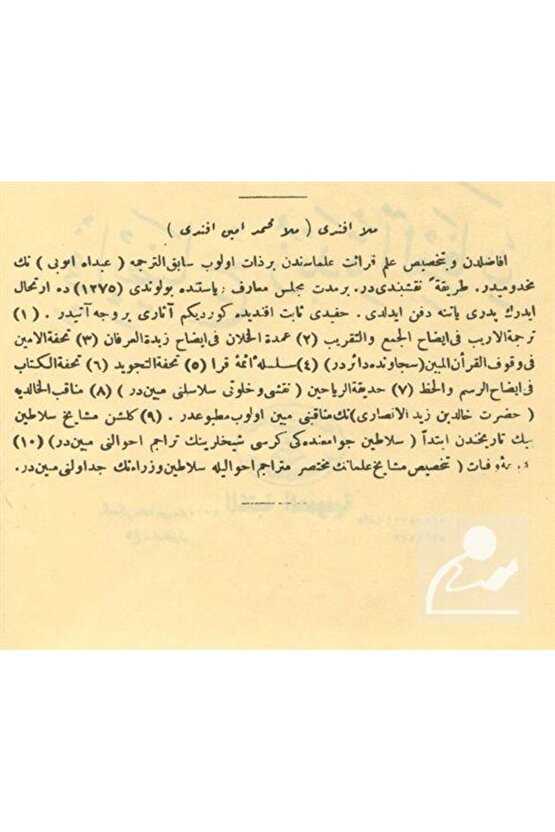 ملا افندی ( ملا محمد امین افندی )
افاضلدن و بتخصیص علم قرائت علماسندن برذات اولوب سابق‌الترجمه ( عبداه ایوبی ) نك
مخدومیدر. طریقةً نقشبندی‌در. برمدت مجلس معارف ریاستنده بولوندی (١٢٧٥) ده ارتحال
ایدرك پدری یاننه دفن ایدلدی. حفیدی ثابت افندیده کوردیکم آثاری بروجه آتیدر . (١)
ترجمة‌الاریب فی‌ایضاح الجمع والتقریب (٢) عمدة الخلان فی‌ایضاح زبدة‌العرفان (٣) تحفة‌الامین
فی وقوف القرأن المبین (سجاونده دائردر) (٤) سلسله‌ٔ ائمهٔ قرا (٥) تحفة‌التجوید (٦) تحفة‌الکتاب
فی‌ایضاح الرسم والخط (٧) حدیقة‌الریاحین ( نقشی وخلوتی سلاسلنی مبین‌در ) (٨) مناقب‌الخالدیه
( حضرت خالدبن زید الانصاری ) نك مناقبنی مبین اولوب مطبوعدر . (٩) کلشن مشایخ سلاطین
بیك تاریخندن ابتدأ ( سلاطین جوامعنده‌کی کرسی شیخلرینك تراجم احوالنی مبین‌در) (١٠)
وفیات ( تخصیص مشایخ علمانك مختصر متراجم احوالیله سلاطین وزراءنك جداولنی مبین‌در.